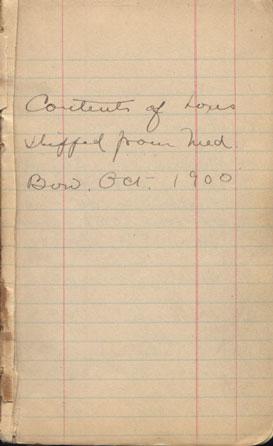 Contents of boxes
shipped from Med.
Bow. Oct. 1900